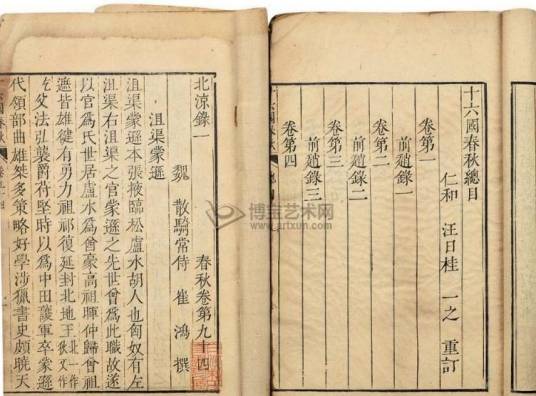 十六國春秋總目
仁和 汪日桂 一之 重訂
卷第一
前趙錄一
卷第二
前趙錄二
卷第三
前趙錄三
卷第四
春秋卷第九十四
北涼錄一
魏 散騎常侍 崔鴻 撰
沮渠蒙遜
沮渠蒙遜本張掖臨松盧水胡人也匈奴有左
沮渠右沮渠之官蒙遜之先世曾爲此職故遂
以官爲氏世居盧水爲酋豪高祖暉仲歸曾祖
遮皆雄健有勇力祖祁復延封北地王 北一作 狄又作
父法弘襲爵苻堅時以爲中田護軍卒蒙遜
代領部曲雄桀多策略好學涉獵書史頗曉天
博宝艺术网
www.artxun.com